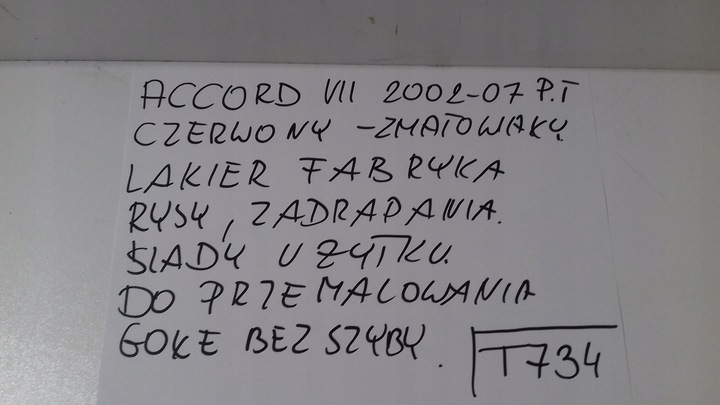 ACCORD VII 2002-07 P.T
CZERWONY - ZMATOWAKY.
LAKIER FABRYKA
RYSY, ZADRAPANIA.
ŚLADY UŻYTKU.
DO PRZEMALOWANIA
GOŁE BEZ SZYBY.
T734